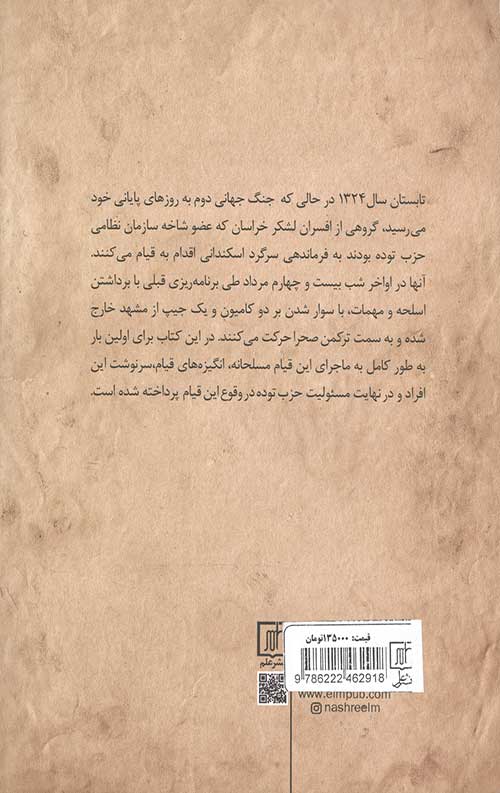 تابستان سال ۱۳۲۴ در حالی که جنگ جهانی دوم به روزهای پایانی خود
می‌رسید، گروهی از افسران لشکر خراسان که عضو شاخه سازمان نظامی
حزب توده بودند به فرماندهی سرگرد اسکندانی اقدام به قیام می‌کنند.
آنها در اواخر شب بیست و چهارم مرداد طی برنامه‌ریزی قبلی با برداشتن
اسلحه و مهمات، با سوار شدن بر دو کامیون و یک جیپ از مشهد خارج
شده و به سمت ترکمن صحرا حرکت می‌کنند. در این کتاب برای اولین بار
به طور کامل به ماجرای این قیام مسلحانه، انگیزه‌های قیام،سرنوشت این
افراد و در نهایت مسئولیت حزب توده در وقوع این قیام پرداخته شده است.
قیمت: ۱۳۵۰۰۰تومان
نشر علم
نشر علم
9 786222 462918
www.elmpub.com
nashreelm